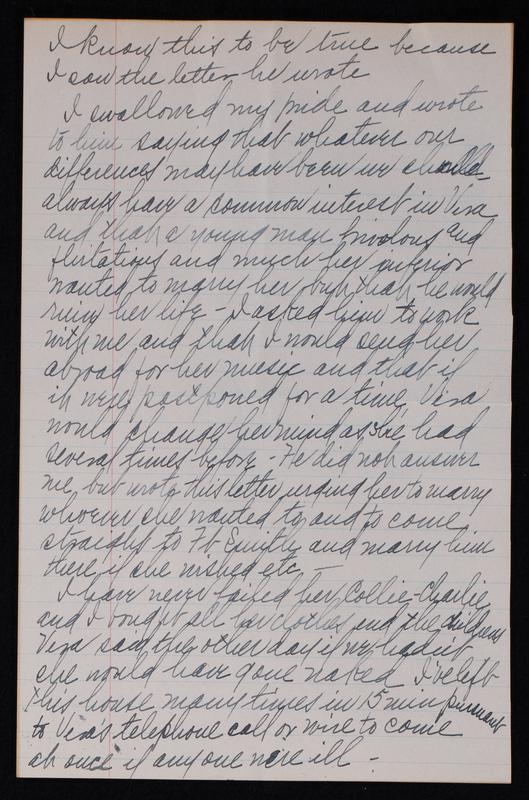 I know this to be true because
I saw the letter he wrote
I swallowed my pride and wrote
to him saying that whatever our
differences may have been we should
always have a common interest in Vera
and that a young man frivolous and
flirtatious and much her inferior
wanted to marry her, but that he would
ruin her life - I asked him to work
with me and that I would send her
abroad for her music and that if
it were postponed for a time, Vera
would change her mind as she had
several times before - He did not answer
me, but wrote this letter urging her to marry
whoever she wanted to and to come
straight to Ft Smith and marry him
there if she wished etc -
I have never failed her, Collie - Charlie
and I bought all her clothes and the childrens
Vera said the other day if we hadn't
she would have gone naked I've left
this house many times in 15 min pursuant
to Vera's telephone call or wire to come
at once if anyone were ill -